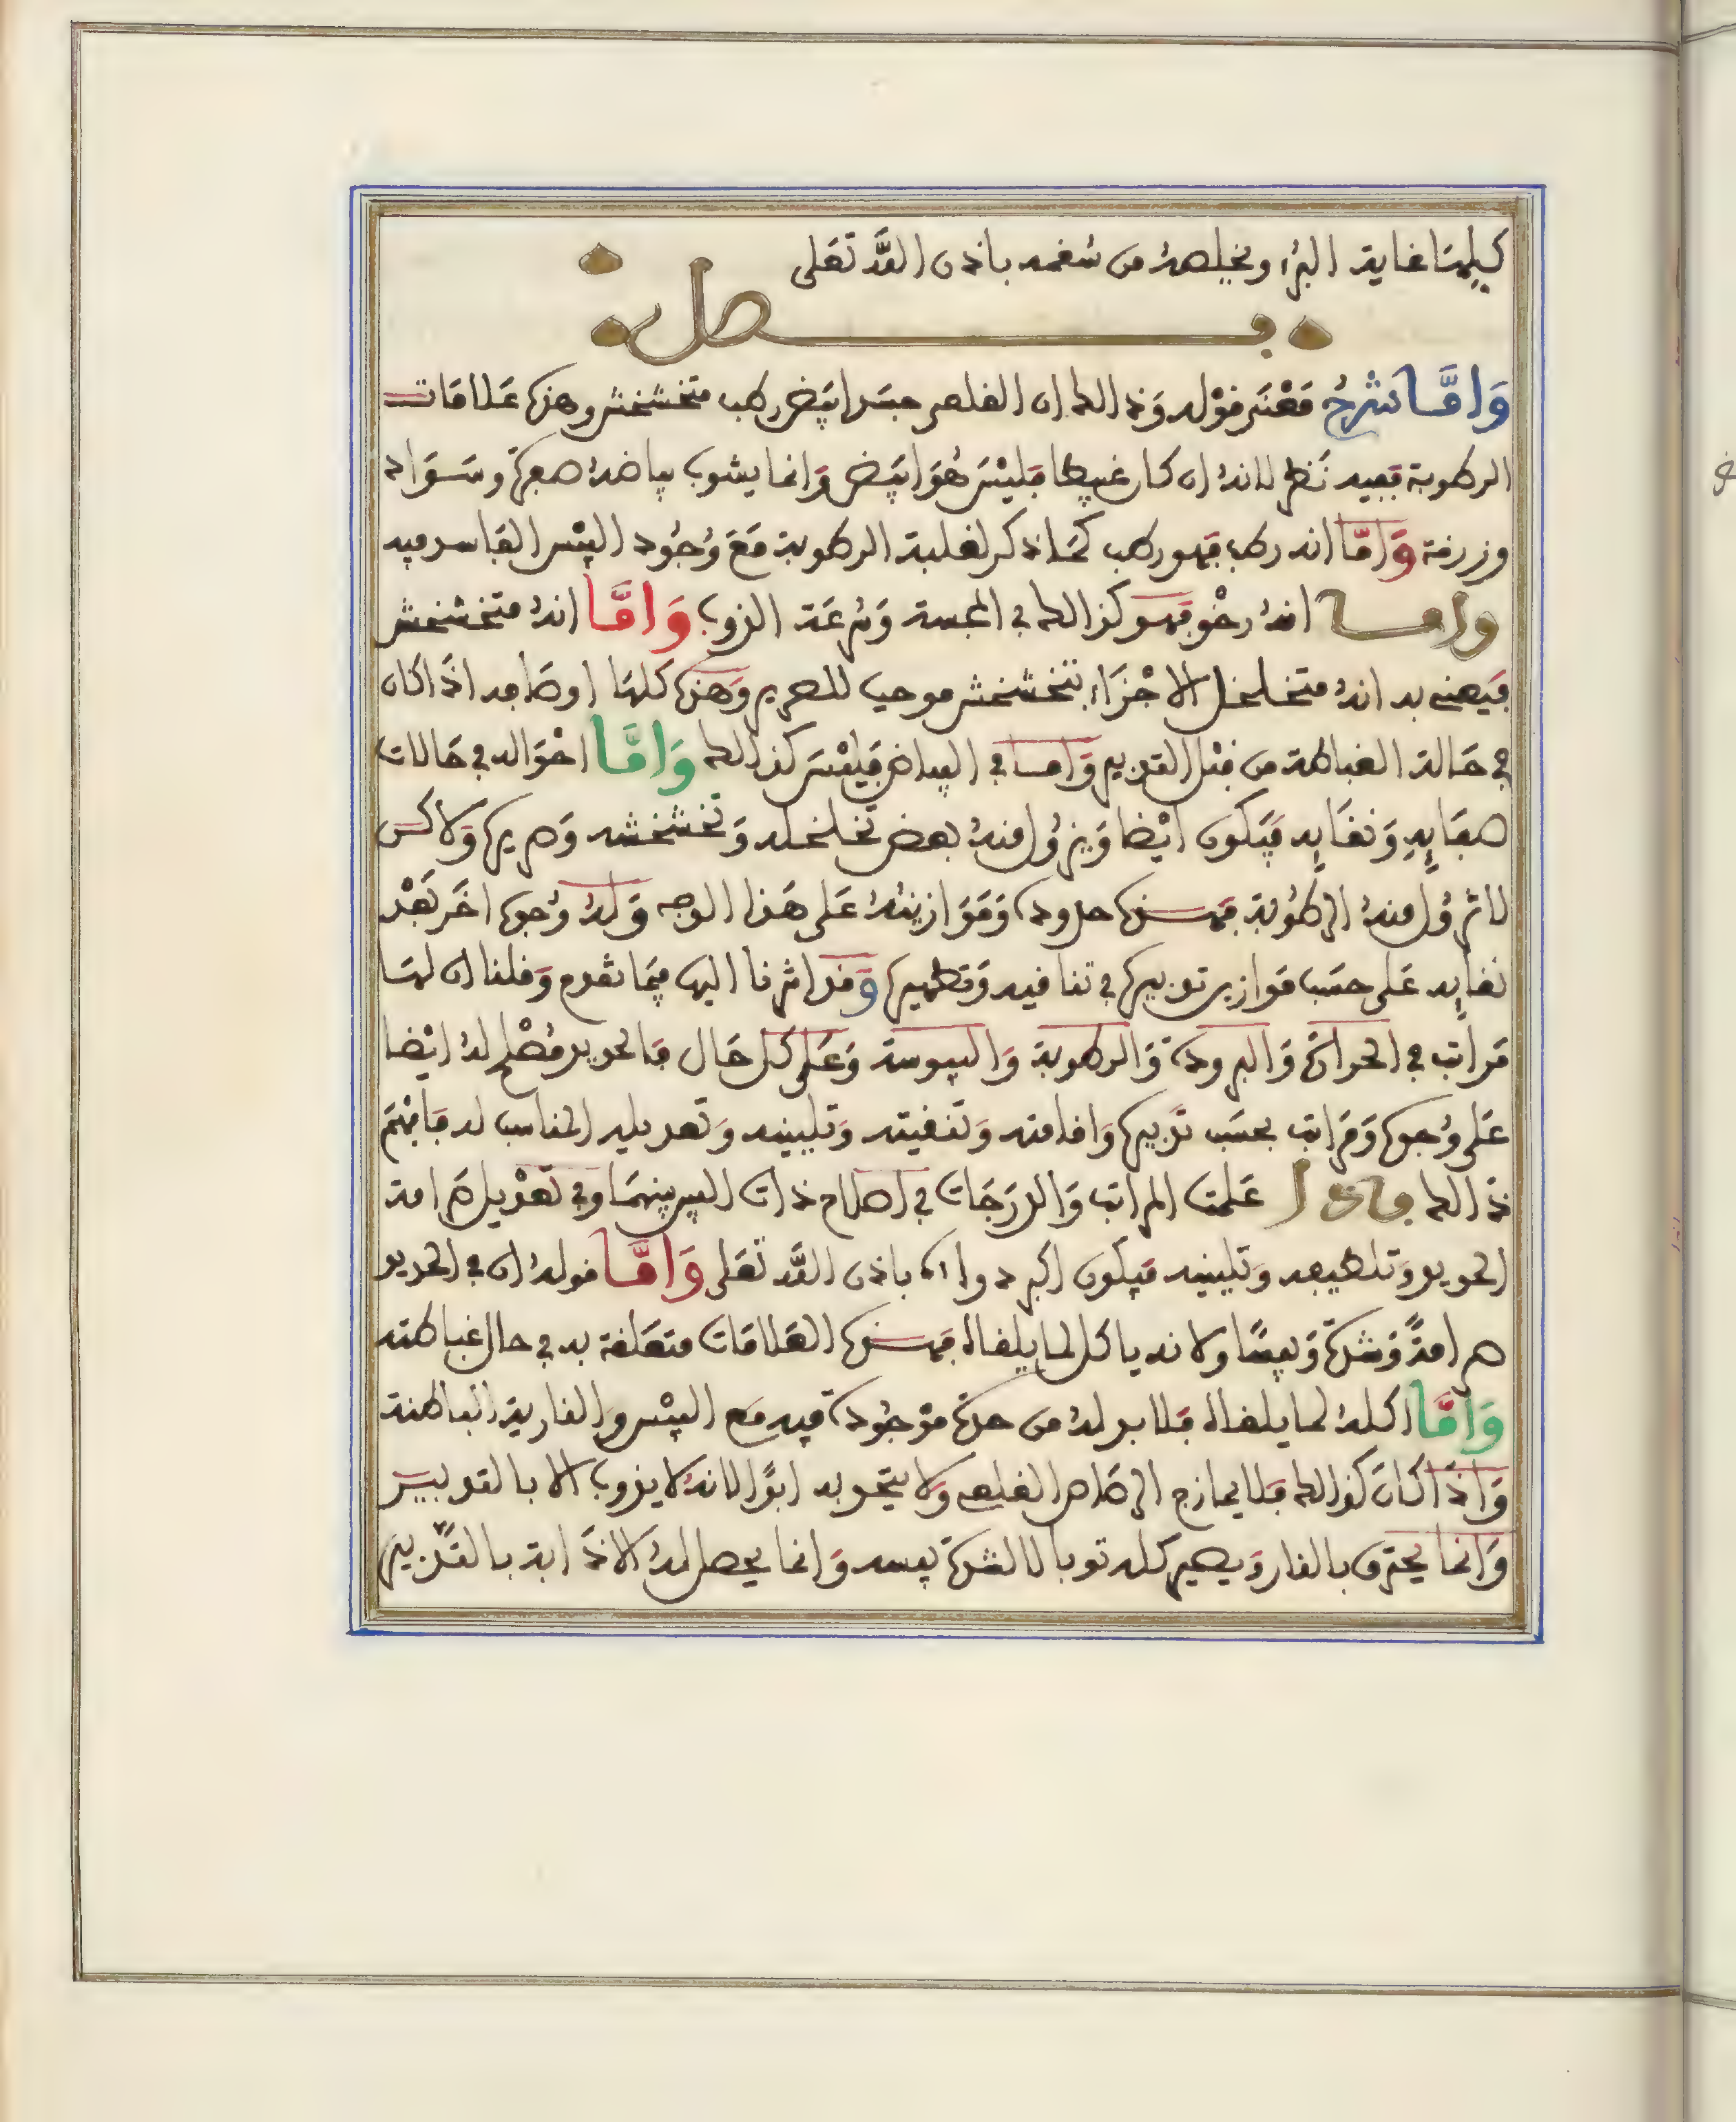 كيلهما غاية البرء ويخلصه من سقمه باذن الله تعلى
فصل
وَامَّا شَرْحُ مَعْنَى قوْله وَذالك ان القلعى جسَد ابيَض رطب متخشخش وهذه عَلامَات
الرطوبة ففيه نَظر لانهُ ان كان غبيطا فليْسَ هُوَ ابيَض وَانما يشوب بياضهُ صفرة وسَوَاد
وزرقة وَامَّا انه رطب فهو رطب كمَا ذكر لغلبة الرطوبة مَعَ وُجُود اليبْس الفاسد فيه
وامــا انهُ رخْو فهـو كذالك في المجسة وَسُرعَة الذوب وَامَّا انهُ متخشخش
فيَعنى به انهُ متخلخل الاجْزَاء بتخشخش موجب للصرير وَهَذه كلهَا اوصَافه اذَا كان
في حَالة الغباطة من قبْل التدبير وَامــا في البياض فليْسَ كذالك وَامَّا احْوَاله في حَالات
صفَايِهِ وَنقَايِه فيَكون ابيْضا وَيزُول منهُ بعض تخلخله وَتخشخشه وَصريره وَلاكن
لا تزُول منهُ الرطُوبة فهــذه حدوده وَمَوَازينهُ عَلى هَذا الوجه وَلهُ وُجوه اخَر بَعْد
نقايِه عَلى حسَب مَوازين تدبيره في تنافيه وَتطهيره وَقد اشرنا اليها فيمَا تقدم وَقلنا ان لهَا
مَراتب في الحرارة وَالبرودة وَالرطوبة وَاليبوسة وَعَلى كل حَال فالحديد مُصْلح لهُ ايْضا
عَلى وُجوه وَمرَاتب بحسَب تدْبيره وَاقامته وَتنقيته وَتليينه وَتعديله المناسب له فافْهَم
ذَالك فاذا عَلمت المراتب وَالدرَجَات في اصلاح ذات البين بينهمَا وفي تعْديل صَرامة
الحديد وَتلطيفه وَتليينه فيكون اكبر دواء باذن الله تَعَلى وَامَّا قولهُ ان في الحديد
صرامةً وَشدةً وَيبسًا ولانه ياكل لما يلقاه فهــذه العَلامَات متعَلقة به في حال غباطته
وَامَّا اكلهُ لما يلقاه فلا بد لهُ من حدة موْجُودة فيه مَع اليبْس وَالنارية الباطنة
وَاذَا كانَ كذالك فلا يمازج الرصَاص القلعى وَلا يتحد به ابدًا لانهُ لا يذوب الا بالتدبيـر
وَانما يحترق بالنار وَيصير كله توبالا لشدة يبسه وَانما يحصل لهُ الاذَابة بالتدْبير